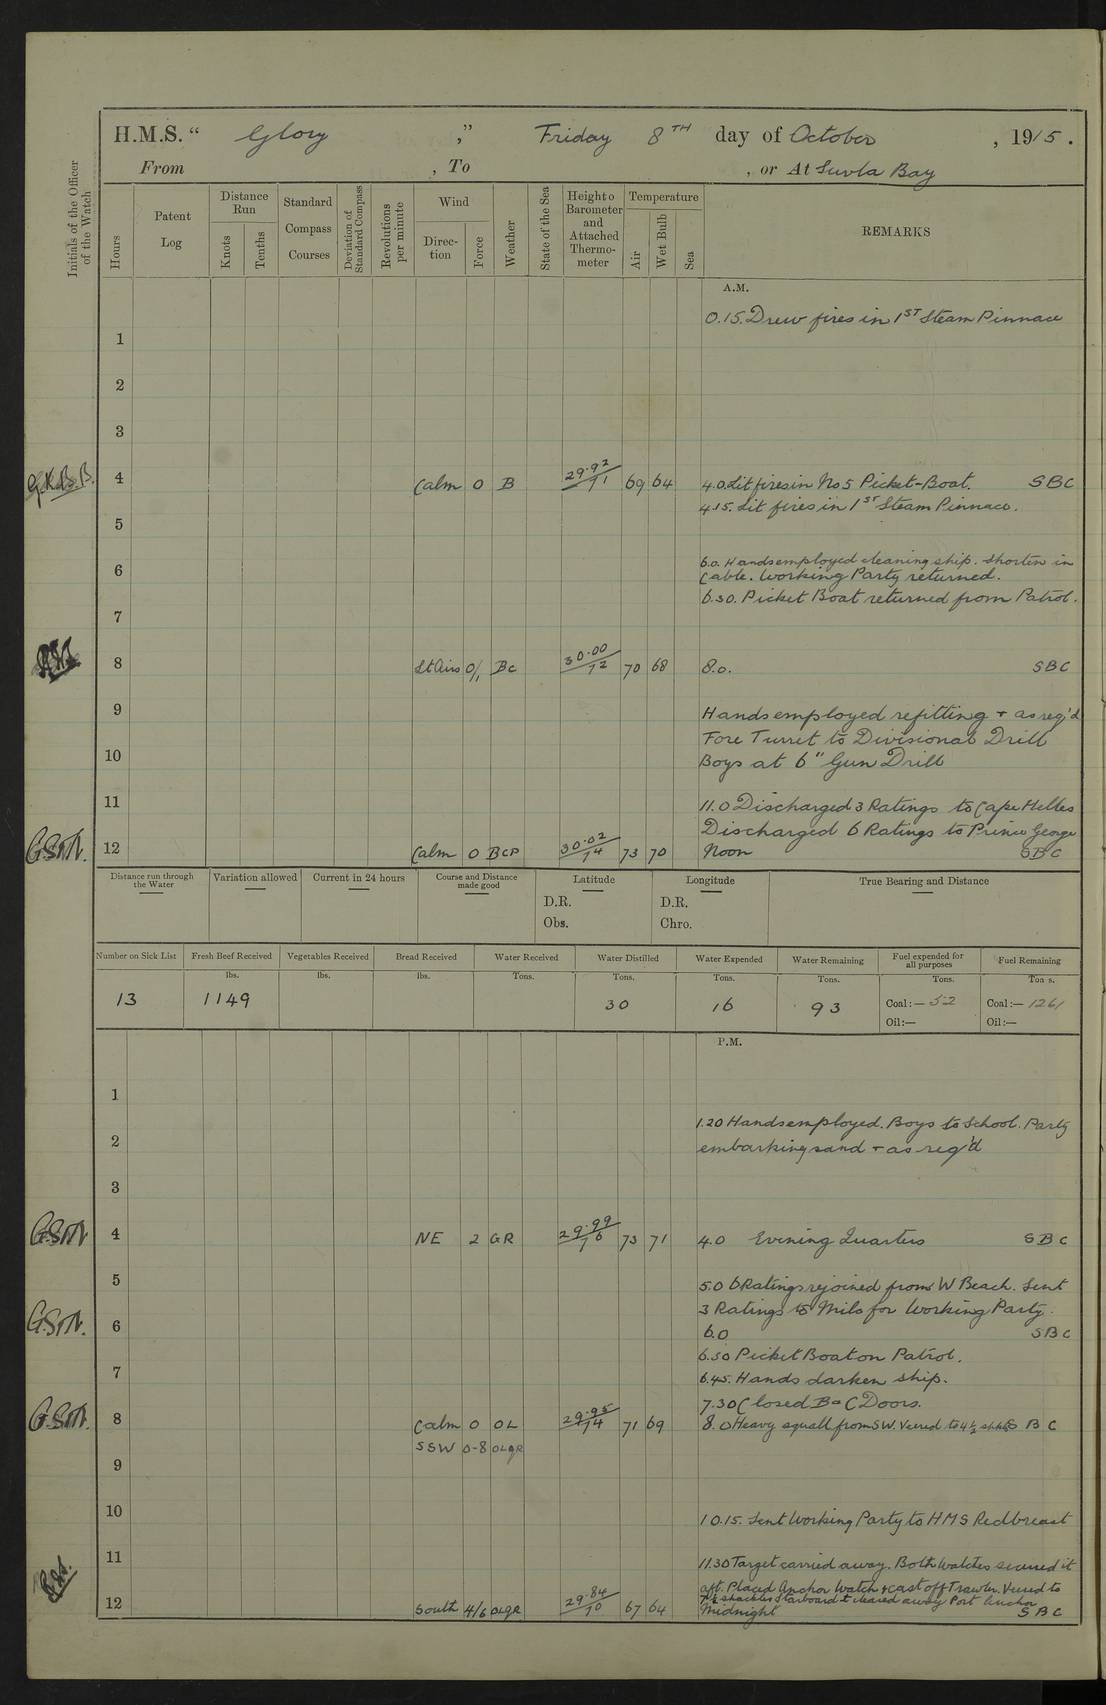 H.M.S. “ Glory ,” Friday 8TH day of October , 1915 .
From , To , or At Suvla Bay
Initials of the Officer of the Watch
Hours
Patent Log
Distance Run
Knots
Tenths
Standard Compass Courses
Deviation of Standard Compass
Revolutions per minute
Wind
Direc-tion
Force
Weather
State of the Sea
Height o Barometer and Attached Thermo-meter
Temperature
Air
Wet Bulb
Sea
REMARKS
A.M.
0.15. Drew fires in 1ST Steam Pinnace
1
2
3
G.K.B.B. 4 Calm 0 B 29.92/71 69 64 4.0. Lit fires in No 5 Picket-Boat. SBC
4.15. Lit fires in 1ST Steam Pinnace.
5
6.0. Hands employed cleaning ship. Shorten in
6 Cable. Working Party returned.
6.30. Picket Boat returned from Patrol.
7
8 Lt Airs 0/1 Bc 30.00/72 70 68 8.0. SBC
9 Hands employed refitting + as req'd
Fore Turret to Divisional Drill
10 Boys at 6" Gun Drill
11 11.0 Discharged 3 Ratings to Cape Helles
Discharged 6 Ratings to Prince George
12 Calm 0 BCP 30.02/74 73 70 Noon SBC
Distance run through the Water
Variation allowed
Current in 24 hours
Course and Distance made good
Latitude
D.R.
Obs.
Longitude
D.R.
Chro.
True Bearing and Distance
Number on Sick List
Fresh Beef Received
Vegetables Received
Bread Received
Water Received
Water Distilled
Water Expended
Water Remaining
Fuel expended for all purposes
Fuel Remaining
lbs. lbs. lbs. Tons. Tons. Tons. Tons. Tons. Ton s.
13 1149 30 16 93 Coal:— 52 Coal:— 1261
Oil:— Oil:—
P.M.
1
1.20 Hands employed. Boys to School. Party
2 embarking sand + as req'd
3
4 NE 2 GR 29.99/76 73 71 4.0 Evening Quarters SBC
5 5.0 6 Ratings rejoined from W Beach. Sent
3 Ratings to Milo for Working Party.
6 6.0 SBC
6.30 Picket Boat on Patrol.
7 6.45. Hands darken ship.
7.30 Closed B & C Doors.
8 Calm 0 OL 29.95/74 71 69 8.0 Heavy squall from SW. Veered to 4½ shkls SBC
SSW 0-8 OLQR
9
10 10.15. Sent Working Party to HMS Redbreast
11 11.30 Target carried away. Both Watches secured it
aft. Placed Anchor Watch & cast off Trawler. Veered to
7½ shackles Starboard & cleared away Port Anchor
12 South 4/6 OLQR 29.84/70 67 64 Midnight SBC